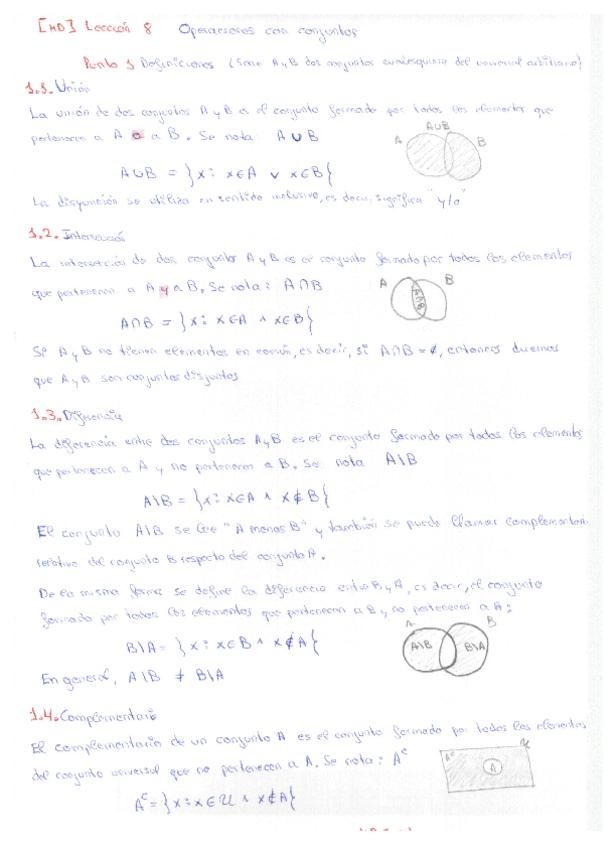 [MD] Lección 8 Operaciones con conjuntos
Punto 1 Definiciones (Sean A y B dos conjuntos cualesquiera del universal arbitrario)
1.1. Unión
La unión de dos conjuntos A y B es el conjunto formado por todos los elementos que
pertenecen a A o a B. Se nota: A∪B
A∪B
A
B
A∪B = }x: x∈A ∨ x∈B{
La disyunción se utiliza en sentido inclusivo, es decir, significa "y/o"
1.2. Intersección
La intersección de dos conjuntos A y B es el conjunto formado por todos los elementos
que pertenecen a A y a B. Se nota: A∩B
A
B
A∩B
A∩B = }x: x∈A ∧ x∈B{
Si A y B no tienen elementos en común, es decir, si A∩B = ∅, entonces diremos
que A y B son conjuntos disjuntos
1.3. Diferencia
La diferencia entre dos conjuntos A y B es el conjunto formado por todos los elementos
que pertenecen a A y no pertenecen a B. Se nota A\B
A\B = }x: x∈A ∧ x∉B{
El conjunto A\B se lee "A menos B" y también se puede llamar complementario
relativo del conjunto B respecto del conjunto A.
De la misma forma se define la diferencia entre B y A, es decir, el conjunto
formado por todos los elementos que pertenecen a B y no pertenecen a A:
A
B
A\B
B\A
B\A = }x: x∈B ∧ x∉A{
En general, A\B ≠ B\A
1.4. Complementario
El complementario de un conjunto A es el conjunto formado por todos los elementos
del conjunto universal que no pertenecen a A. Se nota: Aᶜ
U
Aᶜ
A
Aᶜ = }x: x∈U ∧ x∉A{